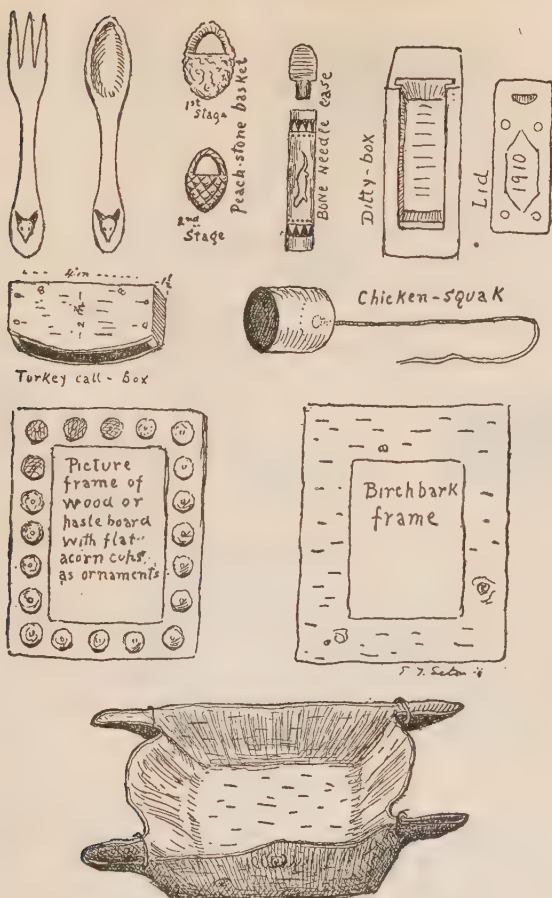 1st
Stage
2nd
Stage
Peach-stone basket
Bone Needle Case
Ditty-box
Lid
1910
4 in
1½
8
8
Turkey call-box
Chicken-squak
Picture
frame of
wood or
hasle board
with flat
acorn cups
as ornaments
Birchbark
frame